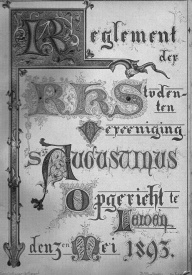 Reglement
der
R.K. Studen-
ten
Vereeniging
St Augustinus
Opgericht te
Leiden
den 3en Mei 1893.